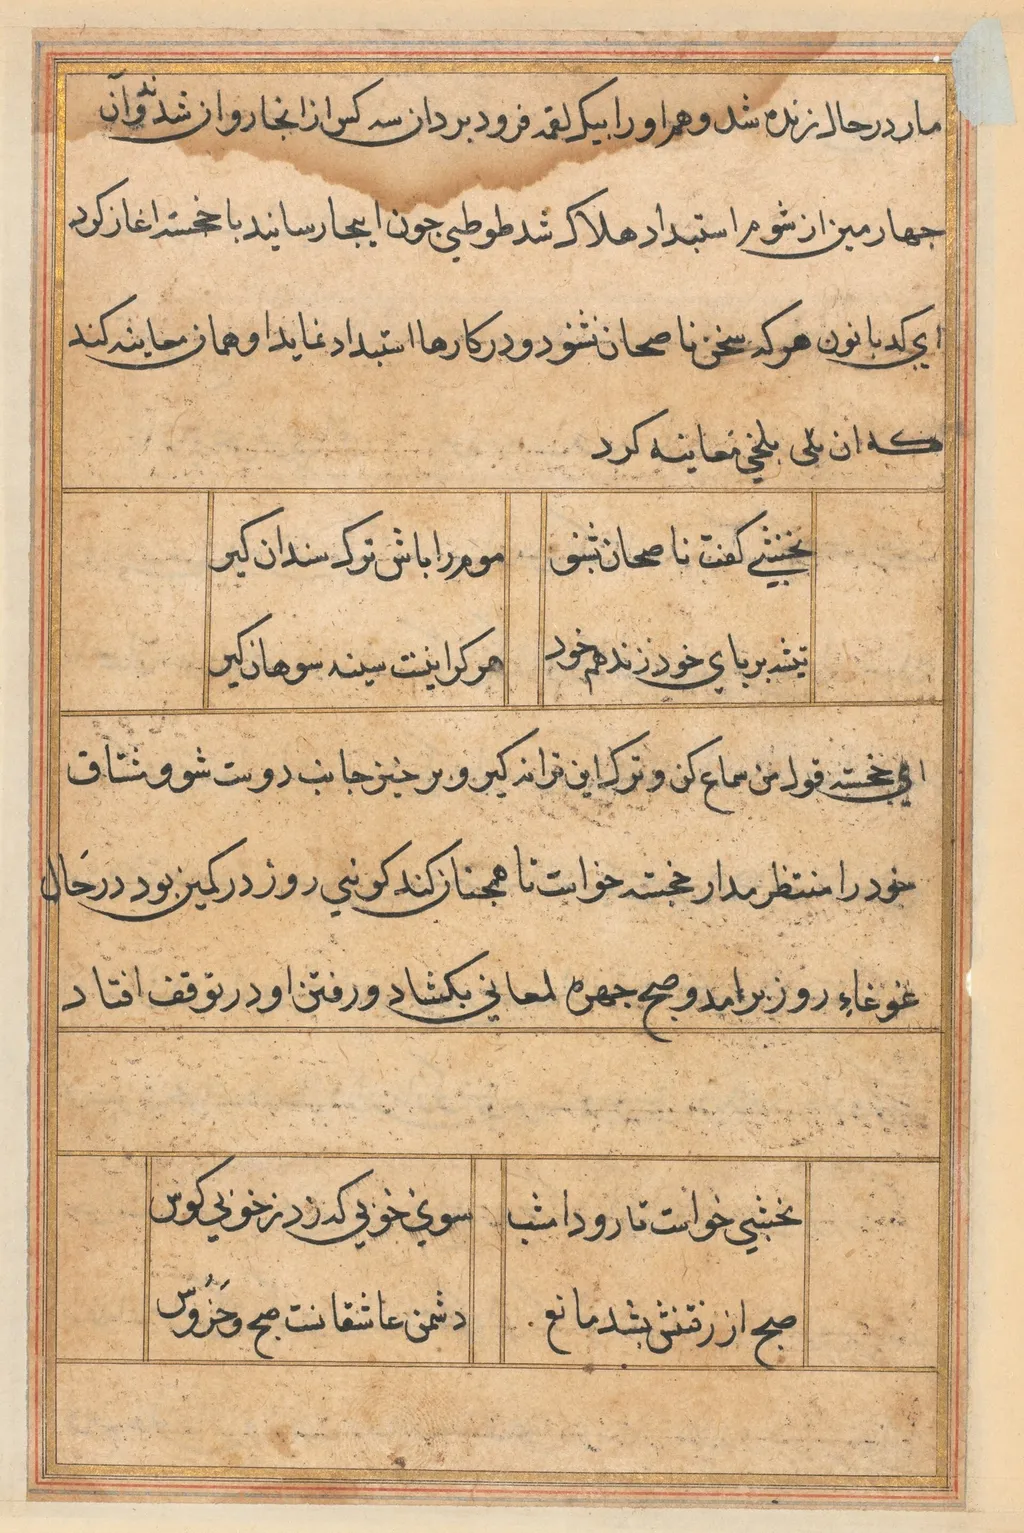 مار در حال زنده شد و هم او را بیک لقمه فرود برد ان سه کس از انجا روان شدند و آن
جهارمین از شوم استبداد هلاک شد طوطی جون اینجا رسانید با خجسته اغاز کرد
ای کدبانون هر که سخن ناصحان نشنود و در کارها استبداد نماید او همان معاینه کند
که ان بلخی معاینه کرد
نخشبی کفت ناصحان بشنو
موم را باش ترک سندان کیر
تیشه بر پای خود زند هم خود
هر کرا اینت سینه سوهان کیر
ای خجسته قول من سماع کن و ترک این ترانه کیر و برخیز جانب دوست شو و مشتاق
خود را منتظر مدار خجسته خواست تا همجنان کند کوئی روز در کمین بود در حال
غوغاء روز برامد و صبح جهره لمعانی بکشاد و رفتن او در توقف افتاد
نخشبی خواست تا رود امشب
سوی خوبی که زد ز خوبی کوس
صبح از رفتنش بشد مانع
دشمن عاشقانست صبح و خروس